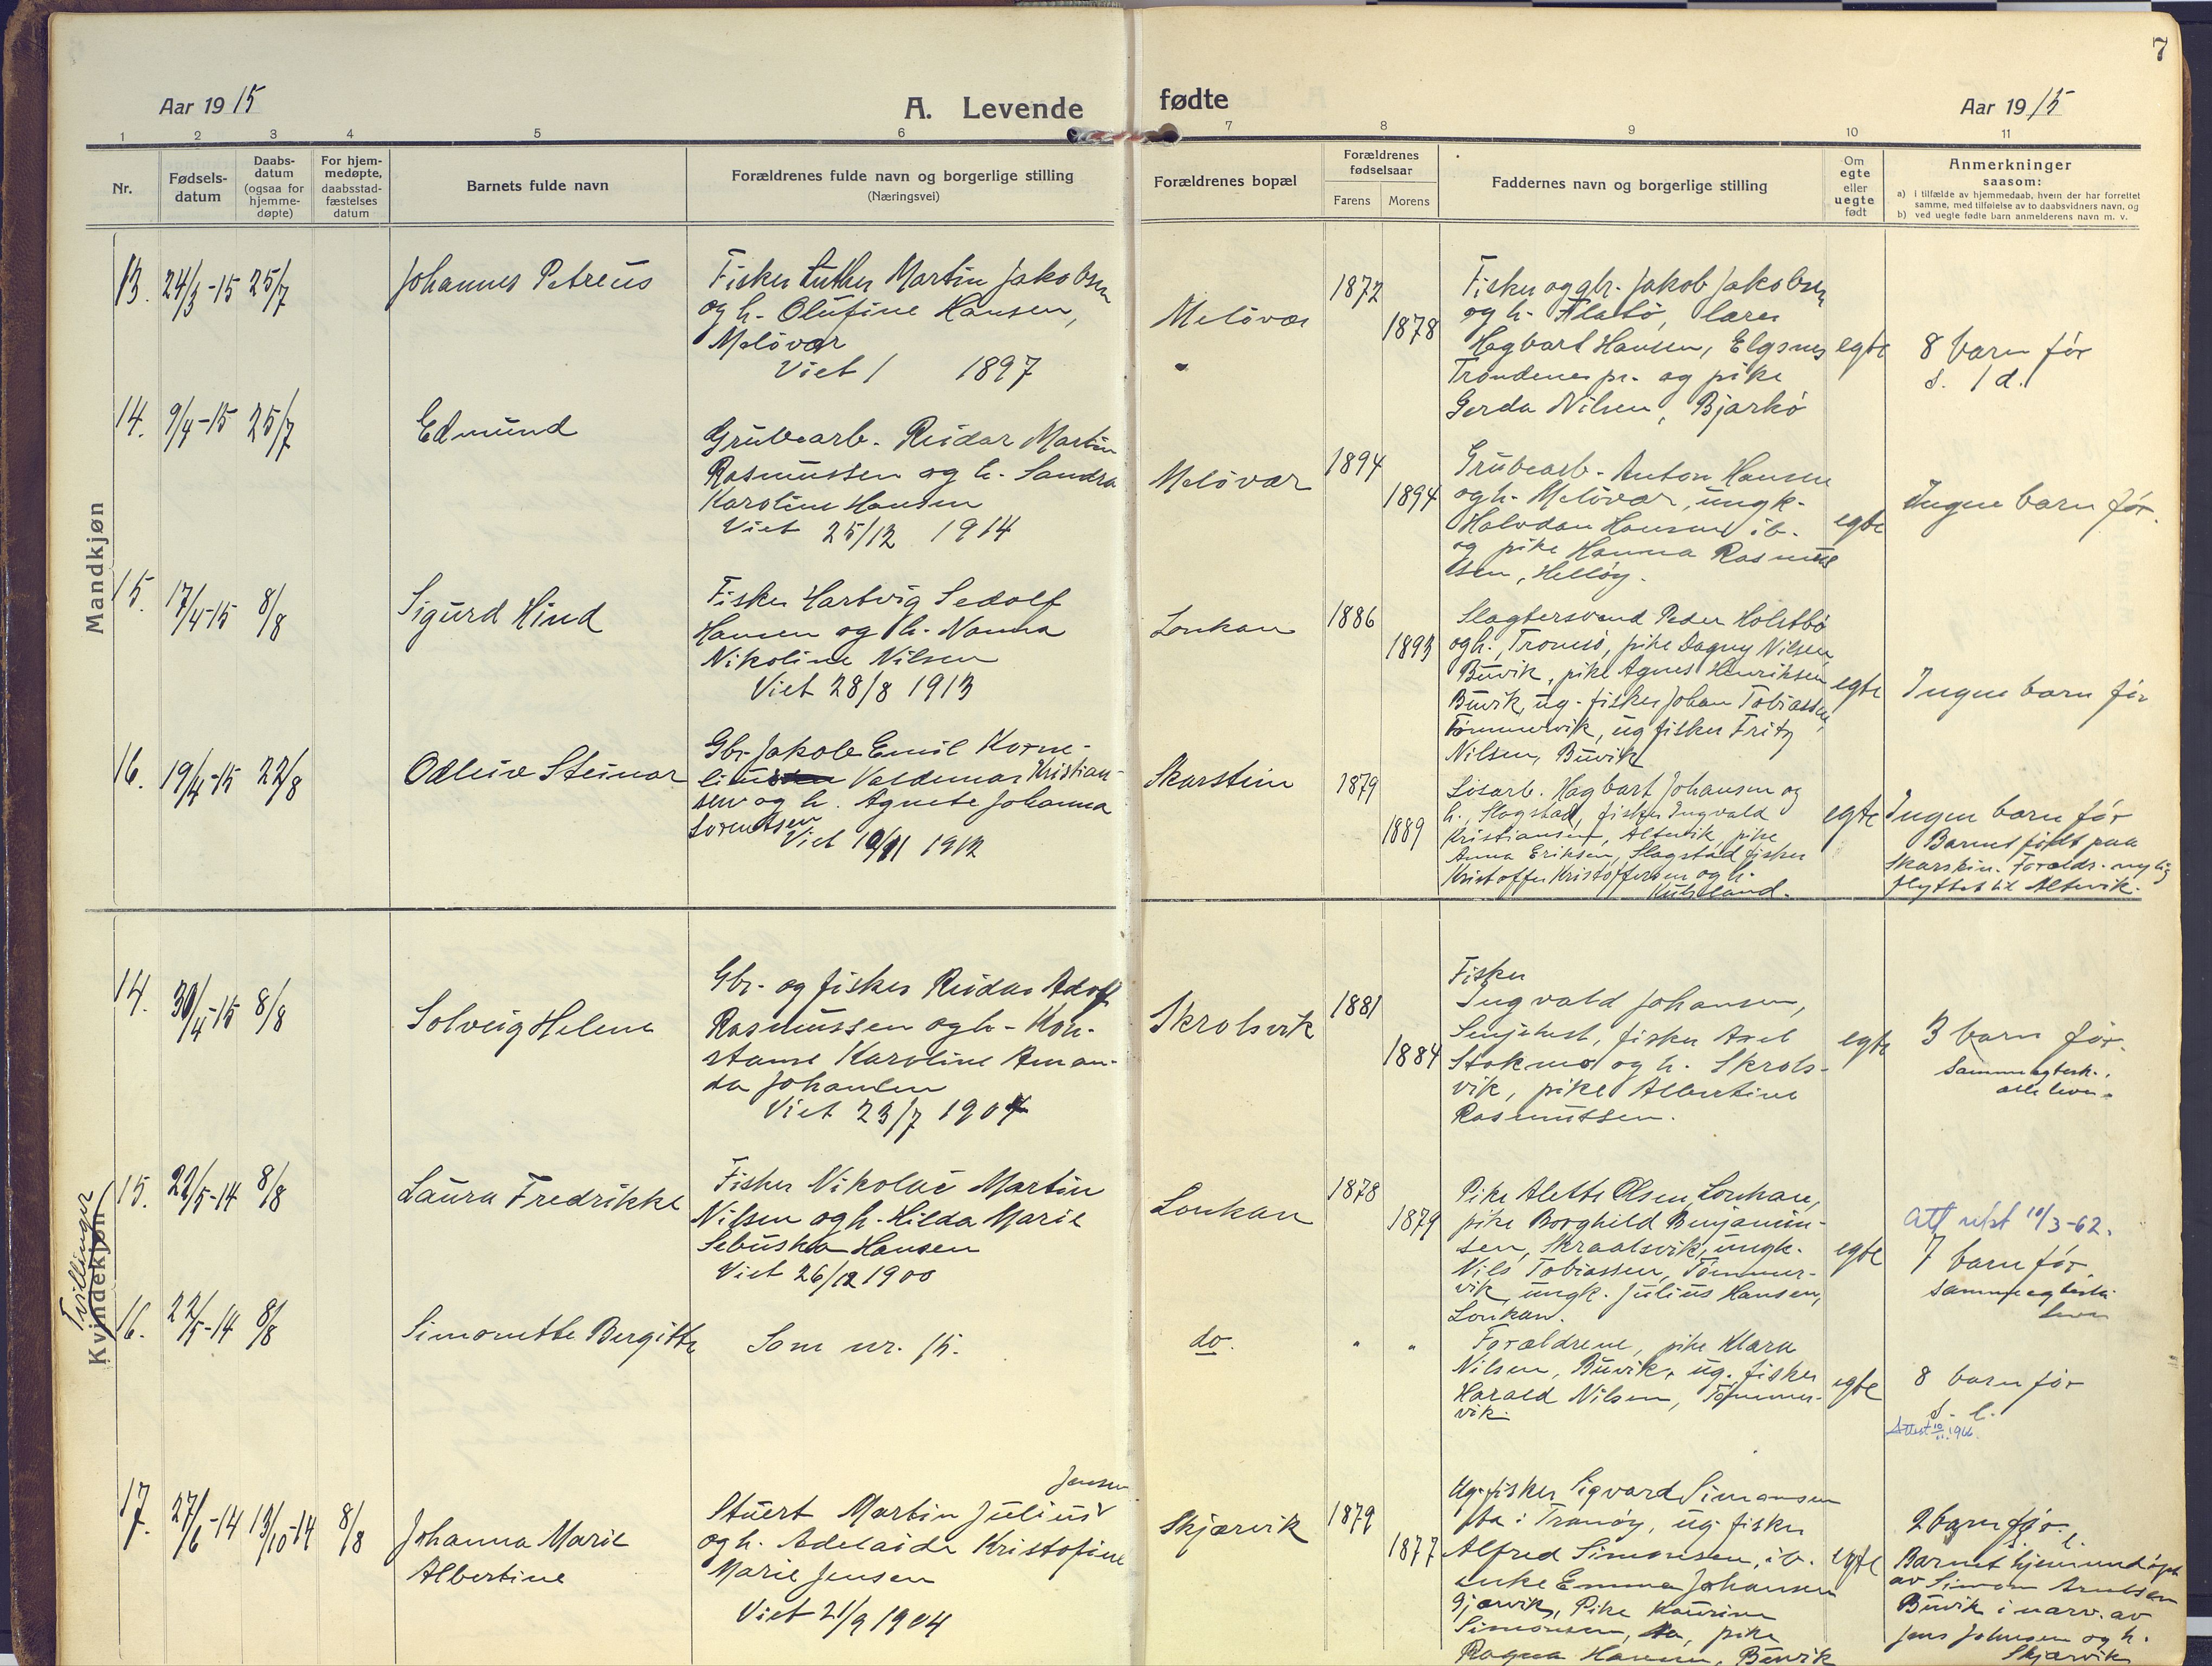 7
Aar 1915
A. Levende fødte
Aar 1915
1 2 3 4 5 6 7 8 9 10 11
Nr.
Fødsels-
datum
Daabs-
datum
(ogsaa for
hjemme-
døpte)
For hjem-
medøpte,
daabsstad-
fæstelses
datum
Barnets fulde navn
Forældrenes fulde navn og borgerlige stilling
(Næringsvei)
Forældrenes bopæl
Forældrenes
fødselsaar
Farens Morens
Faddernes navn og borgerlige stilling
Om
egte
eller
uegte
født
Anmerkninger
saasom:
a) i tilfælde av hjemmedaab, hvem der har forrettet
samme, med tilføielse av to daabsvidners navn, og
b) ved uegte fødte barn anmelderens navn m. v.
Mandkjøn
13. 24/3-15 25/7
Johannes Petreus
Fisker Luther Martin Jakobsen
og h. Olufine Hansen,
Melövær
Viet / 1897
Melövær
"
1872
1878
Fisker og gbr. Jakob Jakobsen
og h. Flatö, lærer
Hagbart Hansen, Elgsnes
Trondenes pr. og pike
Gerda Nilsen, Bjarkö
egte
8 barn før
d. 1 d.
14. 9/4-15 25/7
Edmund
Grubearb. Reidar Martin
Rasmussen og h. Sandra
Karoline Hansen
Viet 25/12 1914
Melövær
1894
1894
Grubearb. Anton Hansen
og h. Melövær, ungk.
Halvdan Hansen ib.
og pike Hanna Rasmus
sen, Hellöy.
egte
Ingen barn før.
15. 17/4-15 8/8
Sigurd Hind
Fisker Hartvig Sedolf
Hansen og h. Nanna
Nikoline Nilsen
Viet 28/8 1913
Lonkan
1886
1893
Slagtersvend Peder Holstbö
og h., Tromsö, pike Dagny Nilsen,
Buvik, pike Agnes Henriksen
Buvik, ug. fisker Johan Tobiassen,
Tömmervik, ug fisker Fritz
Nilsen, Buvik
egte
Ingen barn før
16. 19/4-15 22/8
Odleiv Steinar
Gbr. Jakob Emil Korne-
lius Valdemar Kristian-
sen og h. Agnete Johanna
Lorentsen
Viet 10/11 1912
Skarstein
1879
1889
Losarb. Hagbart Johansen og
h., Slagstad, fisker Ingvald
Kristiansen, Altevik, pike
Anna Eriksen, Slagstad fisker
Kristoffer Kristoffersen og h.
egte
Ingen barn før
Barnet født paa
Skarstein. Foreldr. nylig
flyttet til Altevik.
Kvindekjøn
14. 30/4-15 8/8
Solveig Helene
Gbr. og fisker Reidar Adolf
Rasmussen og h. Kon-
stanse Karoline Aman-
da Johansen
Viet 23/7 1904
Skrolsvik
1881
1884
Fisker
Ingvald Johansen,
Senjehest, fisker Axel
Stokmo og h. Skrols-
vik, pike Albertine
Rasmussen.
egte
3 barn før.
Samme egtesk.,
alle lever.
Tvillinger
15. 22/5-14 8/8
Laura Fredrikke
Fisker Nikolai Martin
Nilsen og h. Hilda Marie
Sebuska Hansen
Viet 26/12 1900
Lonkan
1878
1879
Pike Alette Olsen, Lonkan,
pike Borghild Benjamin-
sen, Skraalsvik, ungk.
Nils Tobiassen, Tömmer-
vik, ungk. Julius Hansen,
Lonkan.
egte
Att utst 10/3-62.
7 barn før.
samme egtesk.
lever
16. 22/5-14 8/8
Simonette Bergitte
Som nr. 15.
do.
" "
Forældrene, pike Klara
Nilsen, Buvik, ug. fisker
Harald Nilsen, Tömmer-
vik.
egte
8 barn før
d. l.
Attest
17. 27/6-14 13/10-14 8/8
Johanna Marie
Albertine
Jensen
Stuert Martin Julius
og h. Adelaide Kristofine
Marie Jensen
Viet 21/9 1904
Skjærvik
1879
1877
Ug. fisker Sigvard Simonsen
fta i Tranöy, ug. fisker
Alfred Simonsen, ib.
enke Emma Johansen
Gjærvik, Pike Kaurine
Simonsen, pike
Ragna Hansen, Buvik
egte
2 barn før.
l.
Barnet hjemmedøpt
av Simon Arntsen
Buvik i nærv. av
Jens Johnsen og h.
Skjærvik